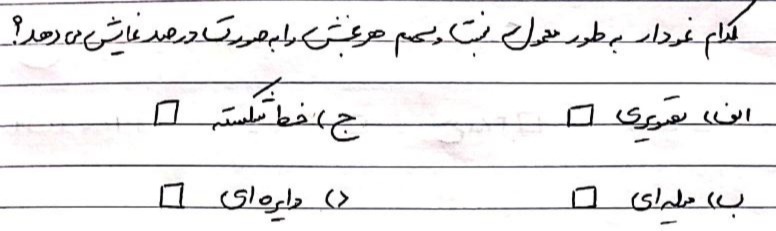 کدام نمودار به طور معمول نسبت و سهم هر بخش را به صورت درصد نمایش می دهد؟
الف) تصویری □ ج) خط شکسته □
ب) میله ای □ د) دایره ای □